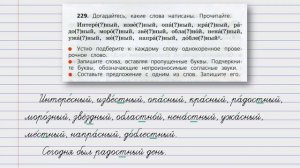 229. Догадайтесь, какие слова написаны. Прочитайте.
Интере(?)ный, изве(?)ный, опа(?)ный, кра(?)ный, ра-
до(?)ный, моро(?)ный, звё(?)ный, обла(?)ной, нена(?)ный,
ужа(?)ный, ме(?)ный, напра(?)ный, добле(?)ный.
• Устно подберите к каждому слову однокоренное прове-
рочное слово.
• Запишите слова, вставляя пропущенные буквы. Подчеркни-
те буквы, обозначающие непроизносимые согласные звуки.
• Составьте предложение с одним из слов. Запишите его.
Интересный, известный, опасный, красный, радостный,
морозный, звёздный, областной, ненастный, ужасный,
местный, напрасный, доблестный.
Сегодня был радостный день.